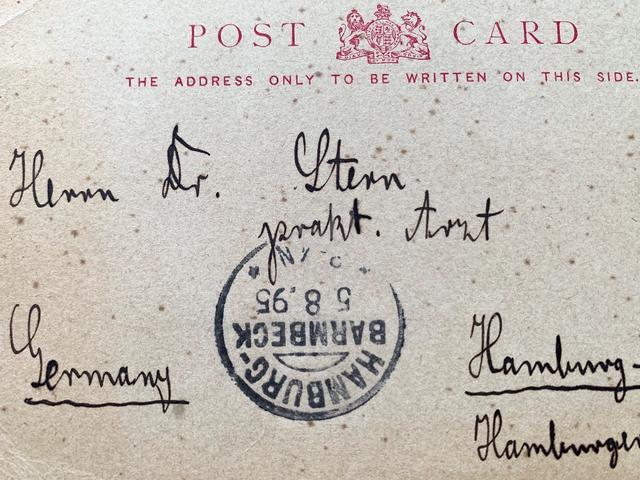 POST CARD
THE ADDRESS ONLY TO BE WRITTEN ON THIS SIDE.
Herrn Dr. Stern
prakt. Arzt
HAMBURG-
BARMBECK
5 8.95
Germany
Hamburg-
Hamburger